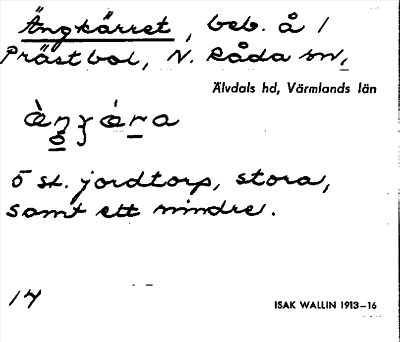 Ängkärret, beb. å 1
Prästbol, N. Råda sn,
Älvdals hd, Värmlands län
5 st. jordtorp, stora,
samt ett mindre.
14
ISAK WALLIN 1913–16